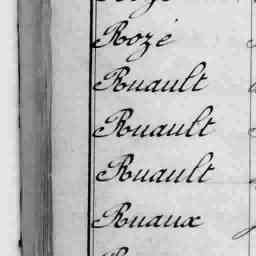 Rozé
Ruault
Ruault
Ruault
Ruaux